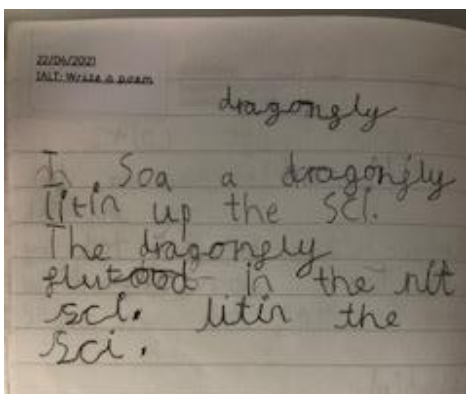 22/04/2021
IALT: Write a poem
dragongly
I Soa a dragongly
litin up the sci.
The dragongly
flutood in the nit
sci. litin the
sci.